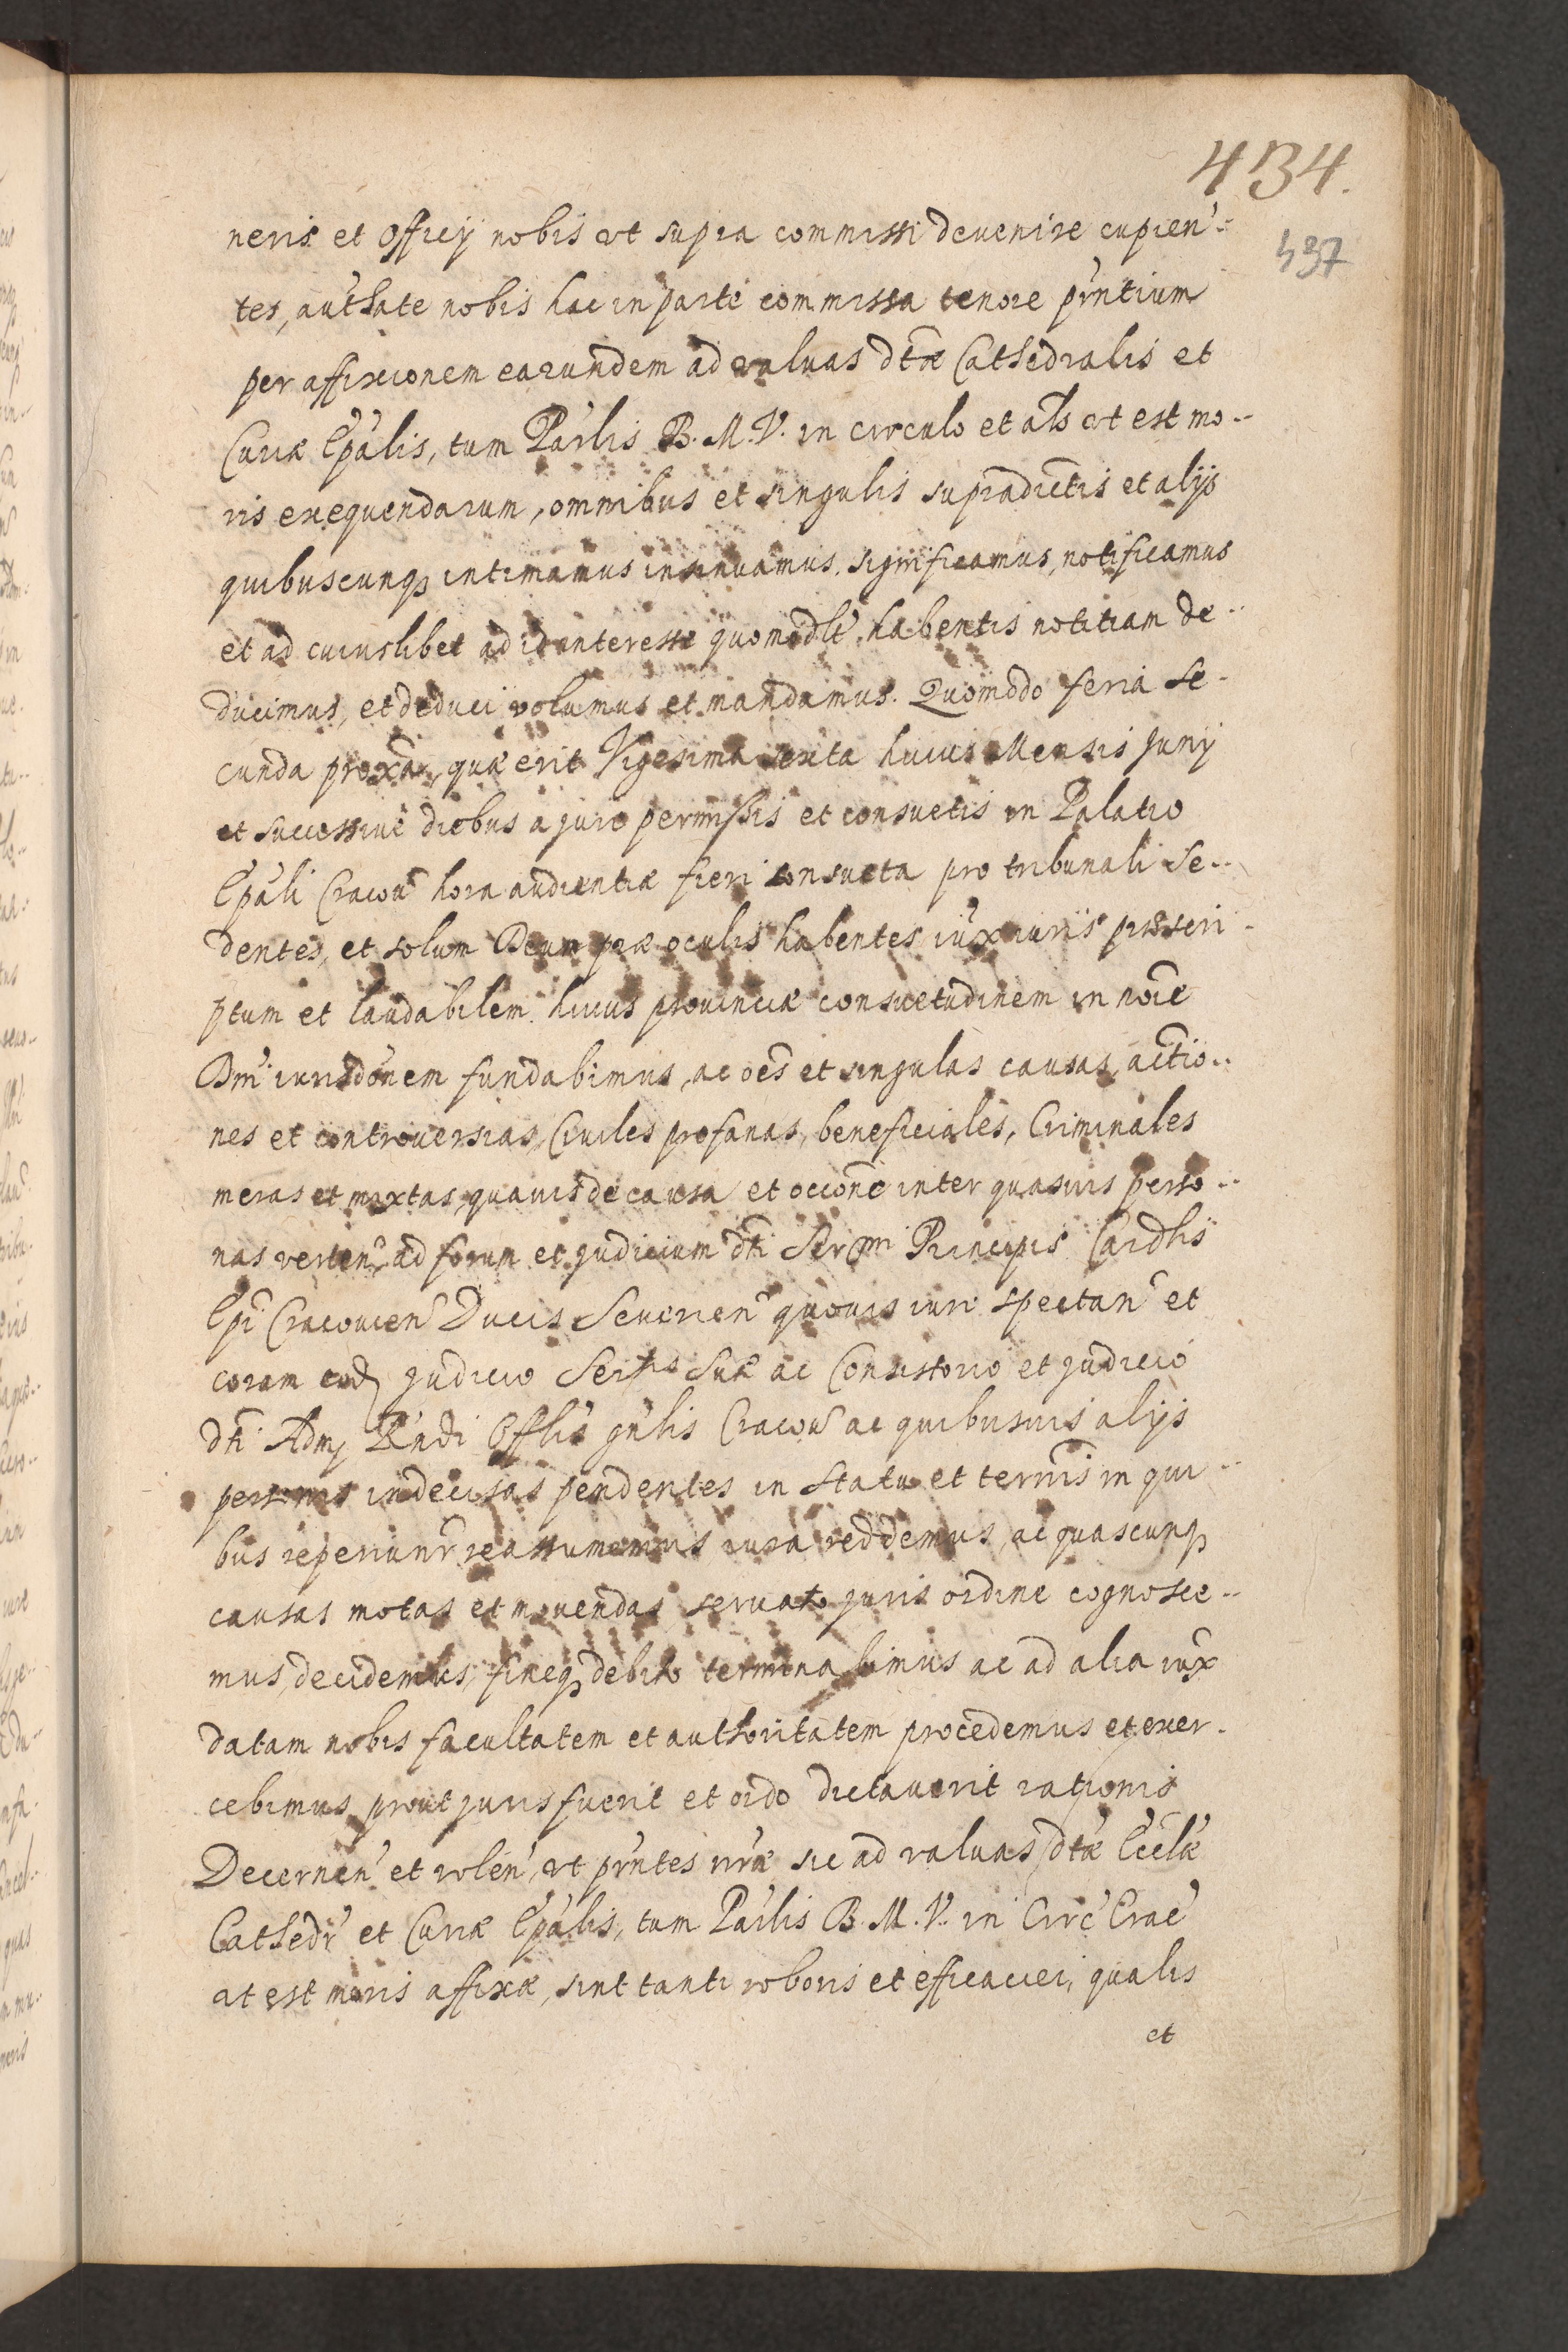 434.
437
neris et Officij nobis vt supra commissi deuenire cupien:
tes, authate nobis hac in parte commissa tenore pntium
per affixionem earundem ad valuas dtæ Cathedralis et
Curiæ Epalis, tum Parlis B. M. V. in circulo et als vt est mo--
ris exequendarum, omnibus et singulis supradictis et alijs
quibuscunq intimamus insinuamus, significamus, notificamus
et ad cuiuslibet ad id interesse quomodlt habentis notitiam de--
ducimus, et deduci volumus et mandamus. Quomodo feria se-
cunda proxa, quæ erit Vigesima sexta huius Mensis Junij
et successiue diebus a jure permissis et consuetis in Palatio
Epali Cracou hora audientiæ fieri consueta pro tribunali se--
dentes, et solum Deum præ oculis habentes iux iuris præscri-
ptum et laudabilem huius prouinciæ consuetudinem in noie
Dni iurisdonem fundabimus, ac oes et singulas causas, actio--
nes et controuersias, Ciuiles profanas, beneficiales, Criminales
meras et mixtas, quauis de causa et occone inter quasuis perso--
nas verten ad forum et Judicium dti Sermi Principis Cardlis
Epi Cracouien Ducis Seuerien quouis iure spectan et
coram eod Judicio Sertis Suæ ac Consistorio et Judicio
dti Adm Rndi Offlis gnlis Cracou ac quibusuis alijs
personis indecisas pendentes in statu et termis in qui--
bus reperiunr reassumemus iura reddemus, ac quascunq
causas motas et mouendas seruato juris ordine cognosce--
mus, decidemus, fineq debito terminabimus ac ad alia iux
datam nobis facultatem et authoritatem procedemus et exer-
cebimus prout juris fuerit et ordo dictauerit rationis
Decernen et volen, vt pntes nræ sic ad valuas dtæ Ecclæ
Cathedr et Curiæ Epalis, tum Parlis B. M. V. in Circ Crac
vt est moris affixæ, sint tanti roboris et efficaciei, qualis
et